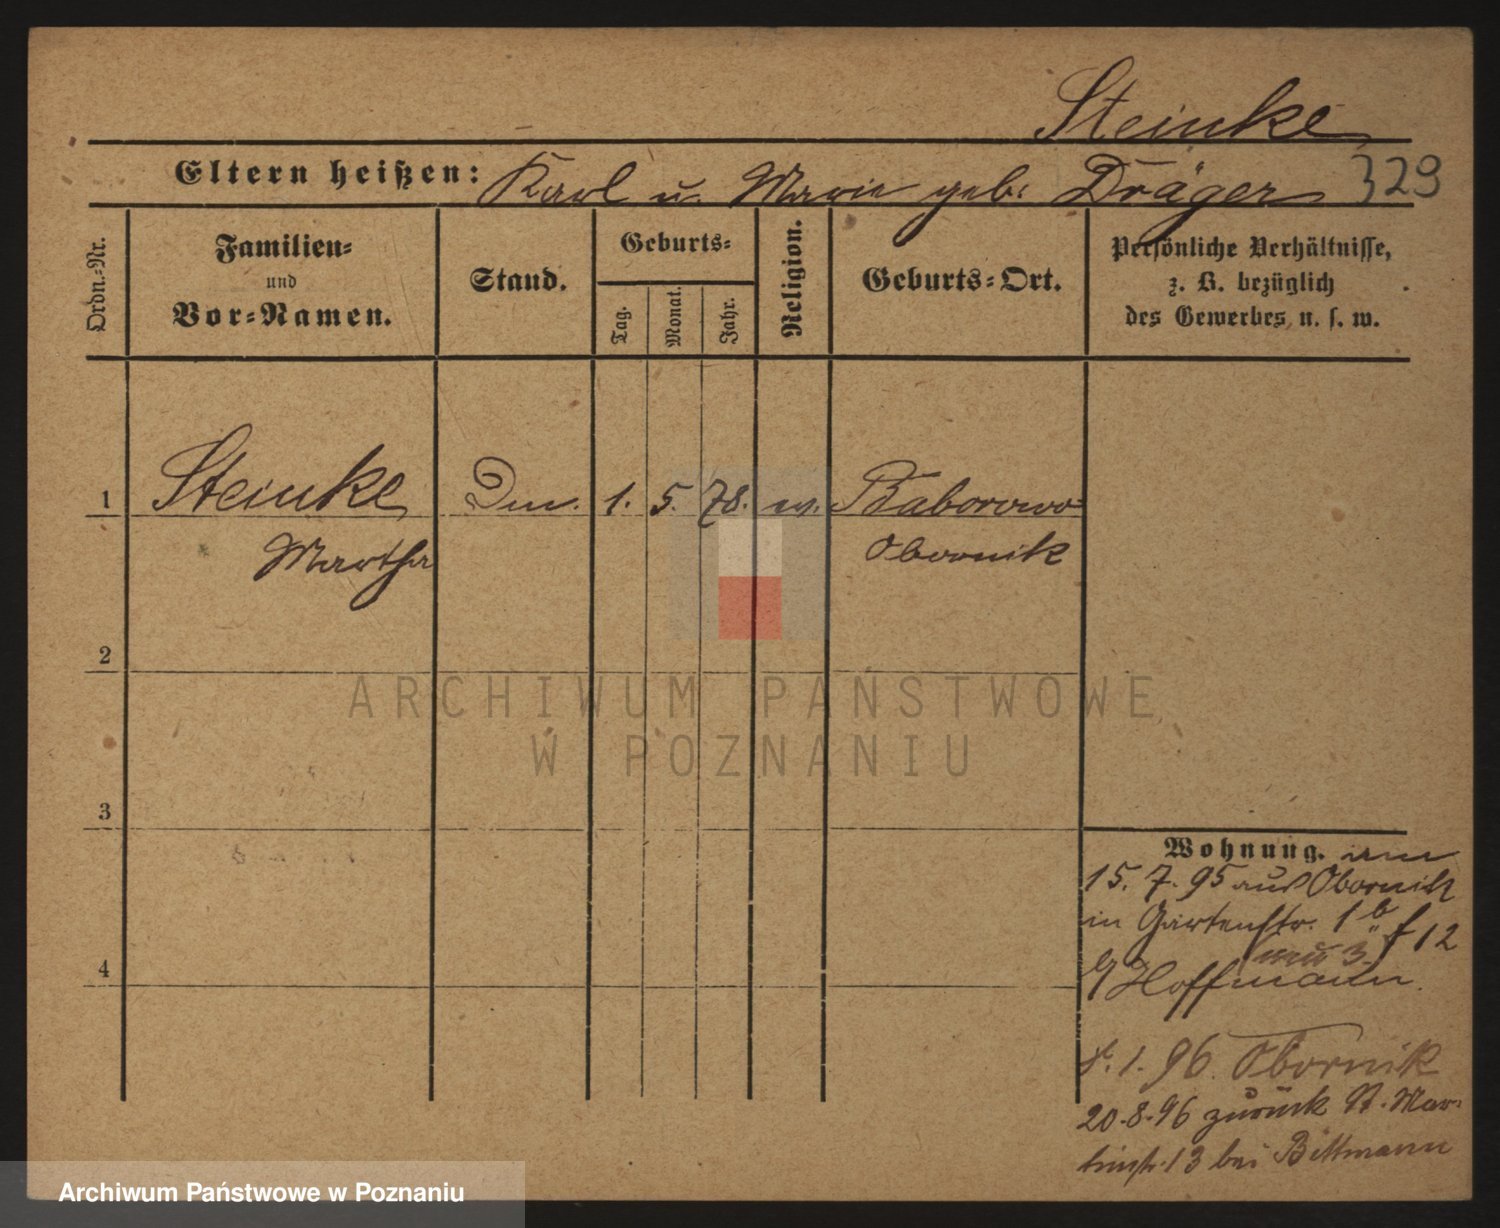 Steinke
Eltern heißen: Karl u. Marie geb. Dräger 329
Ordn.-Nr.
Familien-
und
Vor-Namen.
Stand.
Geburts-
Tag.
Monat.
Jahr.
Religion.
Geburts-Ort.
Persönliche Verhältnisse,
z. B. bezüglich
des Gewerbes, u. s. w.
1 Steinke 1. 5. 78. Baborowo
Martha Obornik
2
3
4
Wohnung.
15. 7. 95 aus Obornik
in Gartenstr. 1 b f 12
neu 3
b/ Hoffmann.
1. 96. Obornik
20.8.96 zurück St. Mar-
tinstr. 13 bei Bittmann
ARCHIWUM PAŃSTWOWE
W POZNANIU
Archiwum Państwowe w Poznaniu